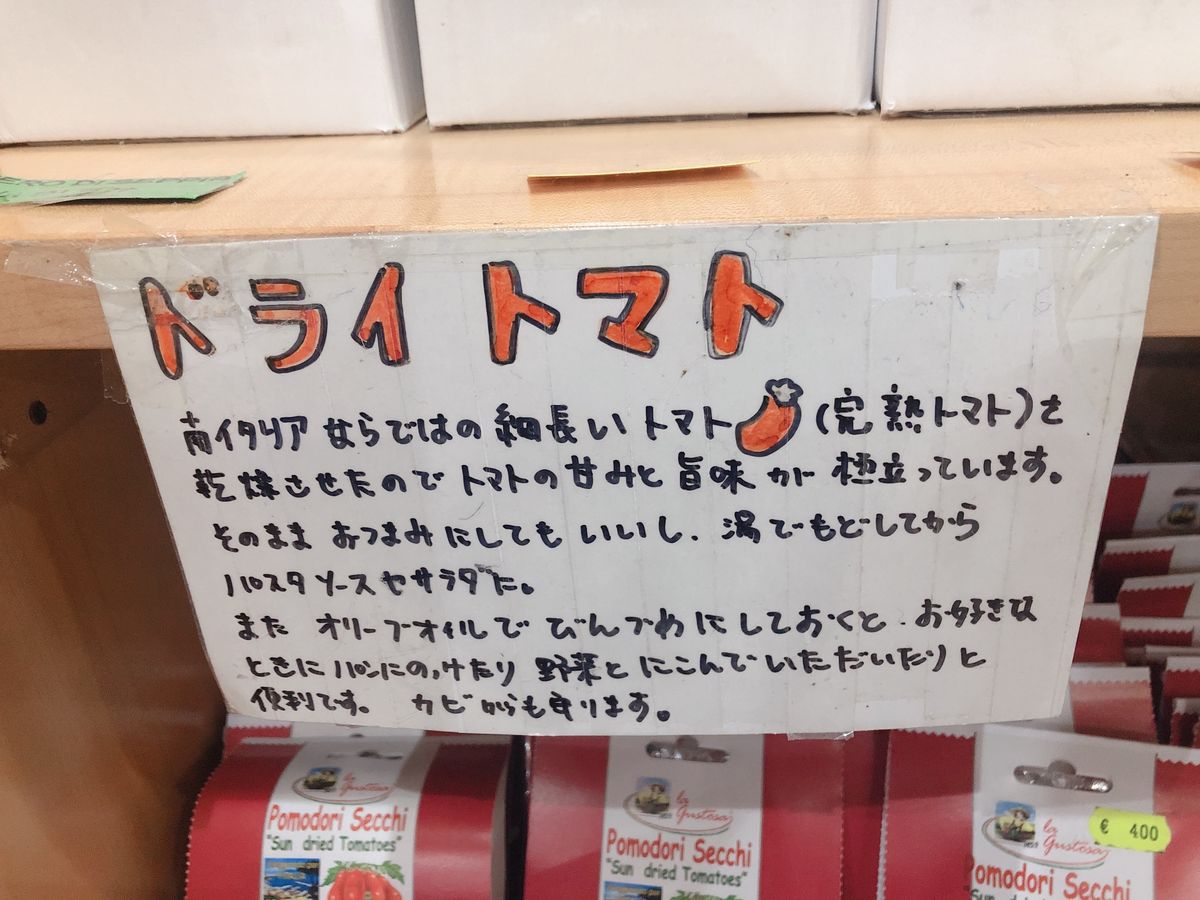 ドライトマト
南イタリアならではの細長いトマト(完熟トマト)を
乾燥させたのでトマトの甘みと旨味が極立っています。
そのままおつまみにしてもいいし、湯でもどしてから
パスタソースやサラダに。
また オリーブオイルでびんづめにしておくと、お好きな
ときにパンにのっけたり 野菜とにこんでいただいたりと
便利です。 カビからも守ります。
la Gustosa
Pomodori Secchi
"Sun dried Tomatoes"
la Gustosa
Pomodori Secchi
"Sun dried Tomatoes"
la Gustosa
€ 400
Pomodori Secchi
"Sun dried Tomatoes"